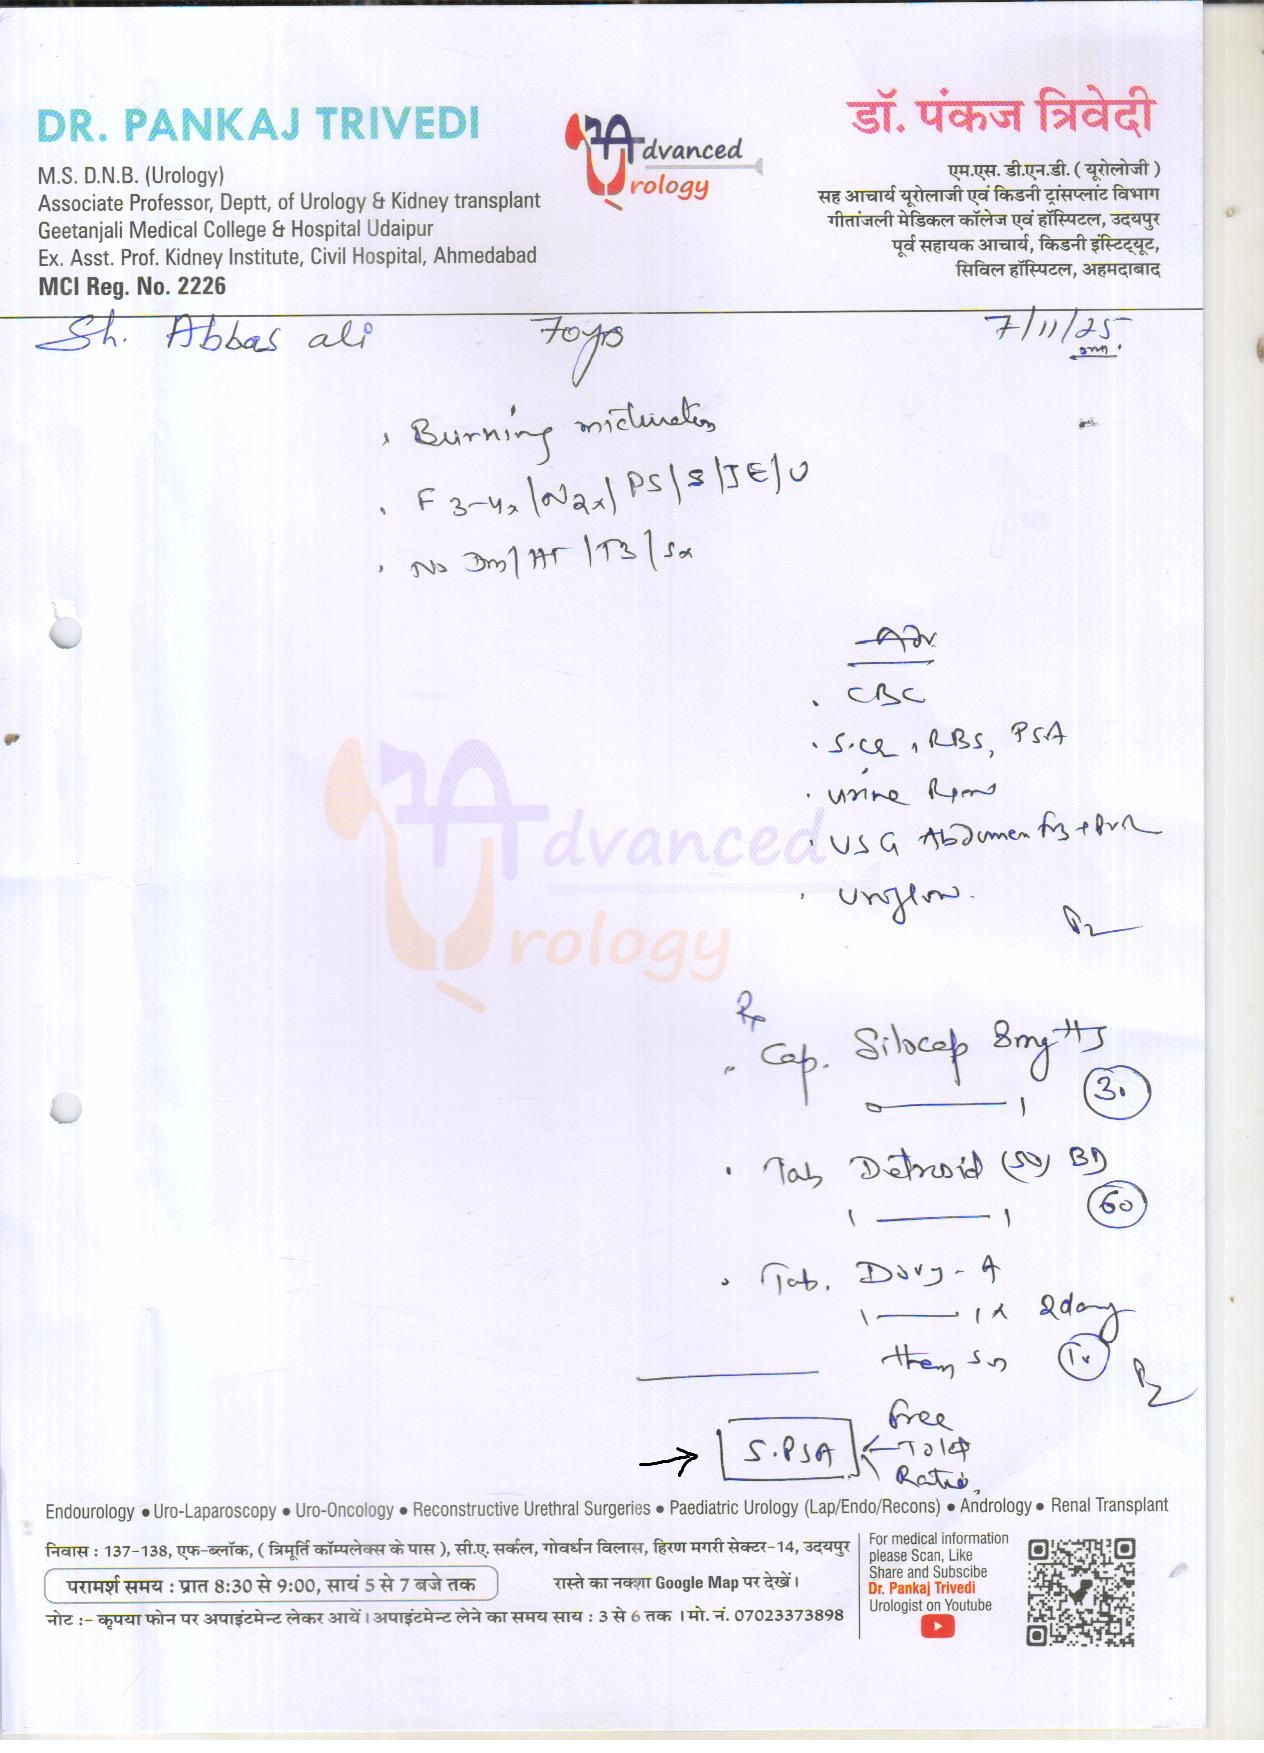 DR. PANKAJ TRIVEDI
M.S. D.N.B. (Urology)
Associate Professor, Deptt, of Urology & Kidney transplant
Geetanjali Medical College & Hospital Udaipur
Ex. Asst. Prof. Kidney Institute, Civil Hospital, Ahmedabad
MCI Reg. No. 2226
Advanced
Urology
डॉ. पंकज त्रिवेदी
एम.एस. डी.एन.डी. ( यूरोलोजी )
सह आचार्य यूरोलाजी एवं किडनी ट्रांसप्लांट विभाग
गीतांजली मेडिकल कॉलेज एवं हॉस्पिटल, उदयपुर
पूर्व सहायक आचार्य, किडनी इंस्टिट्यूट,
सिविल हॉस्पिटल, अहमदाबाद
Sh. Abbas ali 70yrs 7/11/25
Burning micturation
F 3-4x/N2x/PS/S/IE/U
No Dm/HT/TB/Sx
Adv.
CBC
S.Cr, RBS, PSA
Urine
USG Abdomen + PVR
Uroflow.
Advanced
Urology
Rx
Cap. Silocap 8mg HS
30
Tab Detroid (50) BD
1 1
60
Tab.
1 1 x 2day
then
S.PSA
Free
Total
Ratio
Endourology ● Uro-Laparoscopy ● Uro-Oncology ● Reconstructive Urethral Surgeries ● Paediatric Urology (Lap/Endo/Recons) ● Andrology ● Renal Transplant
निवास : 137-138, एफ-ब्लॉक, ( त्रिमूर्ति कॉम्पलेक्स के पास ), सी.ए. सर्कल, गोवर्धन विलास, हिरण मगरी सेक्टर-14, उदयपुर
परामर्श समय : प्रात 8:30 से 9:00, सायं 5 से 7 बजे तक
रास्ते का नक्शा Google Map पर देखें।
नोट :- कृपया फोन पर अपाइंटमेन्ट लेकर आयें। अपाइंटमेन्ट लेने का समय साय : 3 से 6 तक । मो. नं. 07023373898
For medical information
please Scan, Like
Share and Subscibe
Dr. Pankaj Trivedi
Urologist on Youtube